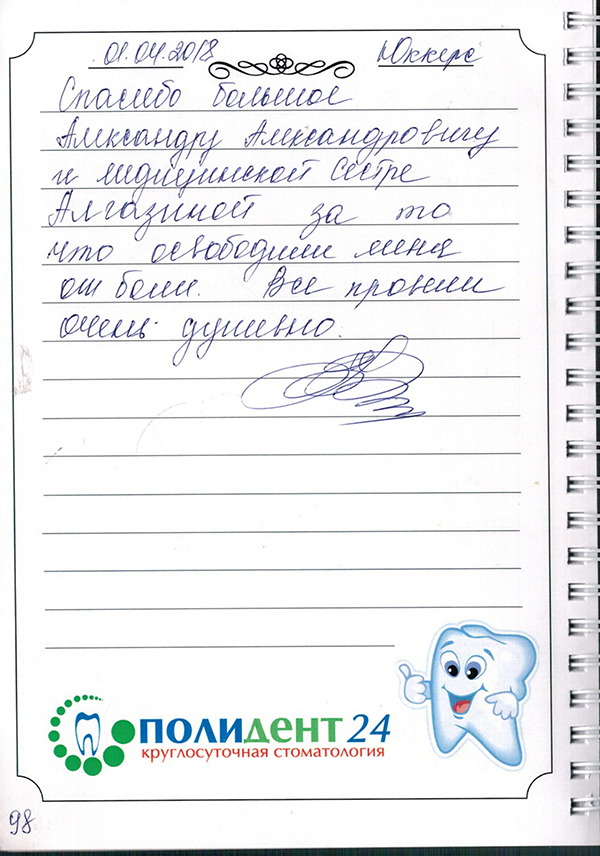 01.04.2018 Юккерс
Спасибо большое
Александру Александровичу
и медицинской сестре
Алгазиной за то
что освободили меня
от боли. Все провели
очень душевно.
ПОЛИДЕНТ 24
круглосуточная стоматология
98